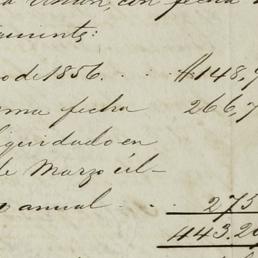 con fecha
amente:
o de 1856. . . . $148,9
ma fecha 266,7
liquidado en
de Marzo úl-
anual . . . 275
443.20